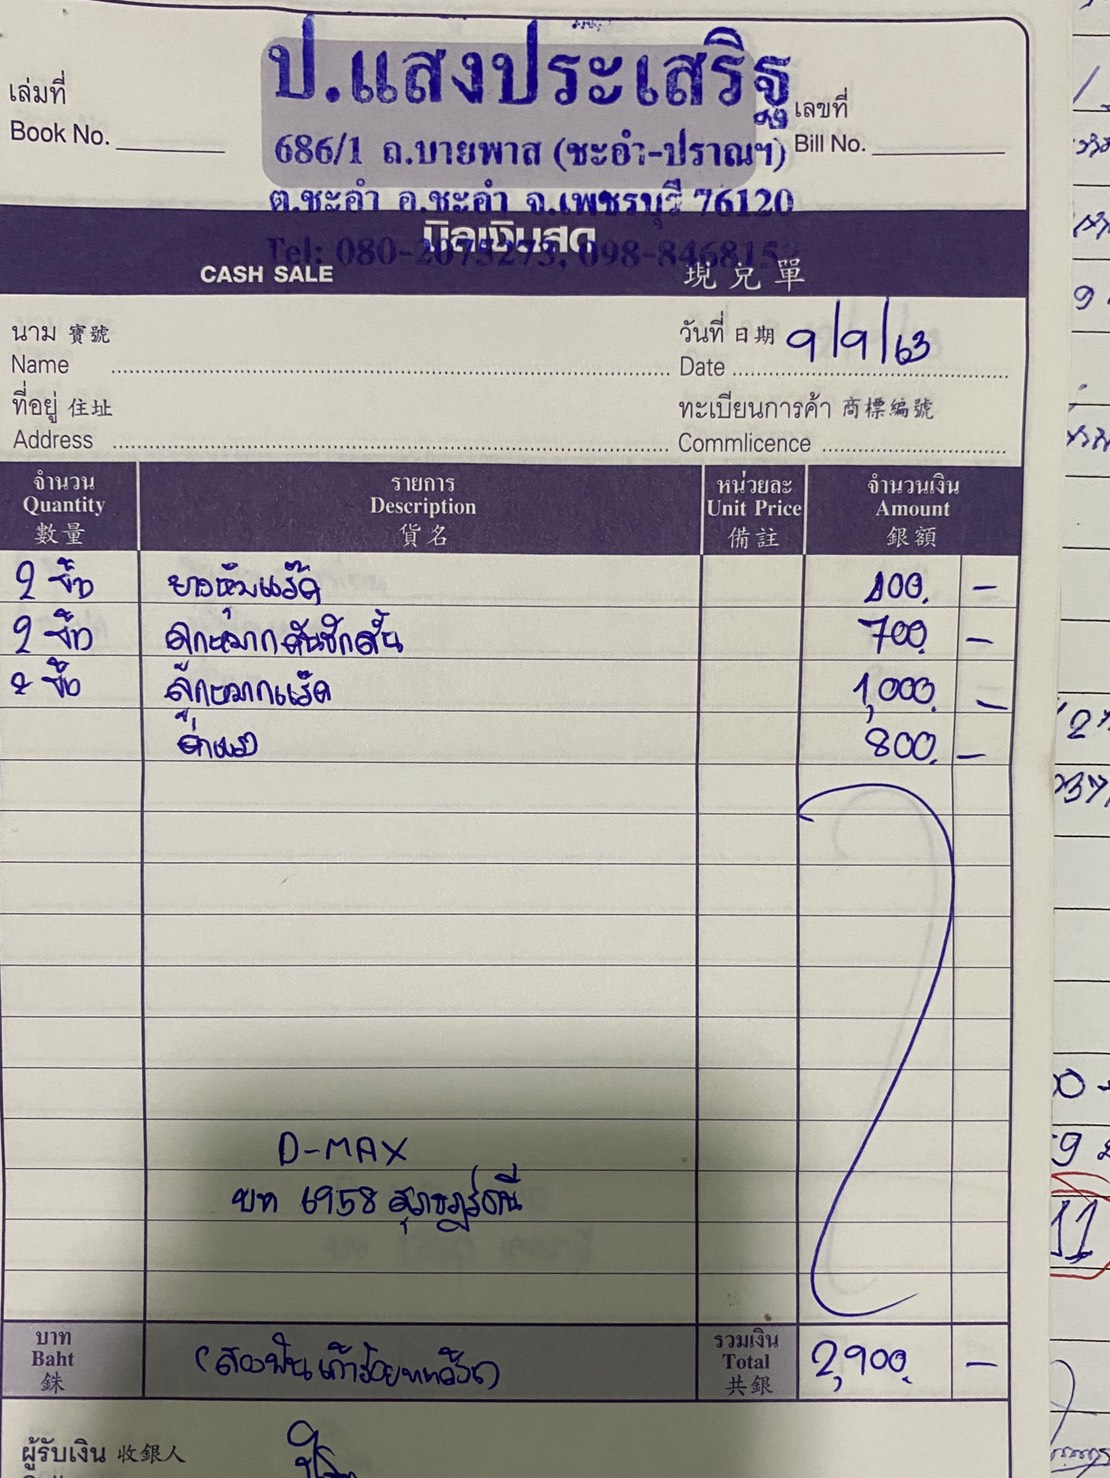 ป.แสงประเสริฐ
เล่มที่
Book No.
เลขที่
Bill No.
686/1 ถ.บายพาส (ชะอำ-ปราณฯ)
ต.ชะอำ อ.ชะอำ จ.เพชรบุรี 76120
บิลเงินสด
Tel: 080-2075273, 098-846815
CASH SALE
現兑單
นาม 寶號
Name
วันที่ 日期 9/9/63
Date
ที่อยู่ 住址
Address
ทะเบียนการค้า 商標編號
Commlicence
จำนวน รายการ หน่วยละ จำนวนเงิน
Quantity Description Unit Price Amount
數量 貨名 備註 銀額
2 ชิ้น ยางหุ้มแร็ค 400. –
2 ชิ้น ลูกหมากคันชักสั้น 700. –
2 ชิ้น ลูกหมากแร็ค 1,000. –
ค่าแรง 800. –
D-MAX
บท 6958 สุราษฎร์ธานี
บาท
Baht
銖
(สองพันเก้าร้อยบาทถ้วน)
รวมเงิน
Total
共銀
2,900. –
ผู้รับเงิน 收銀人